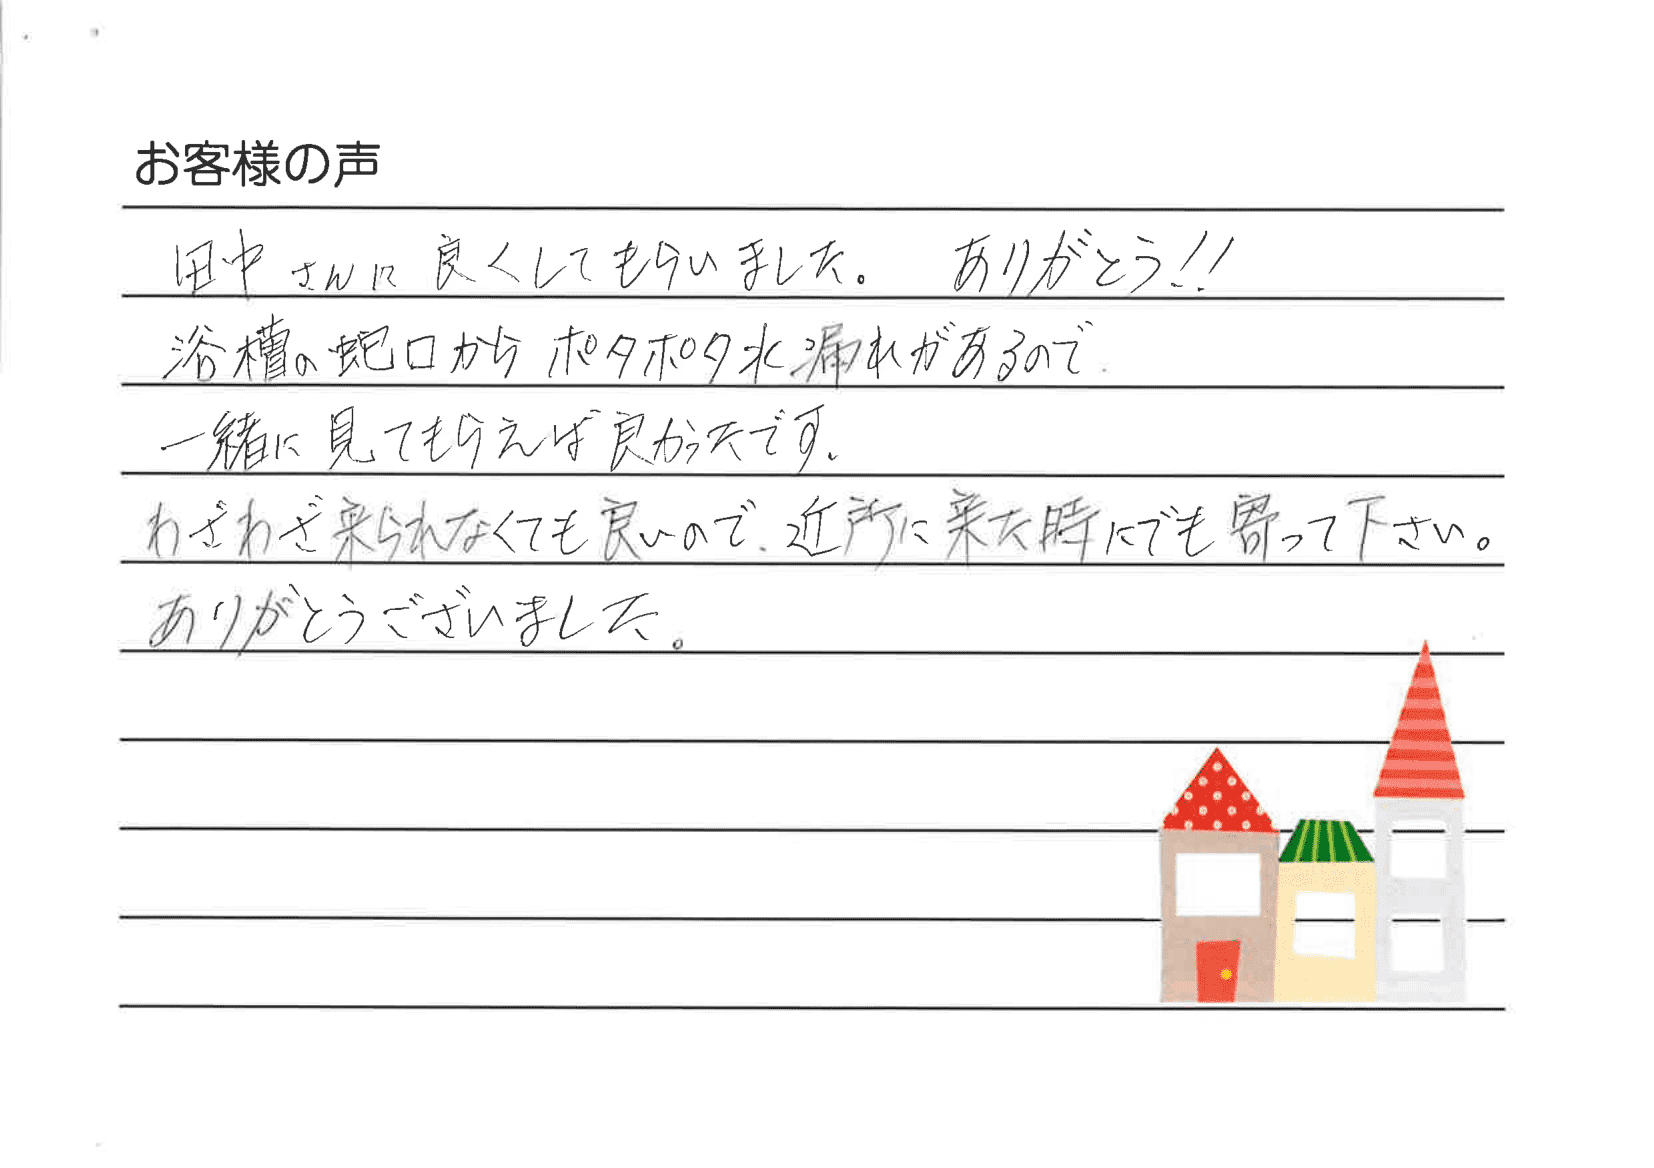 お客様の声
田中さんに良くしてもらいました。 ありがとう!!
浴槽の蛇口からポタポタ水漏れがあるので、
一緒に見てもらえば良かったです。
わざわざ来られなくても良いので、近所に来た時にでも寄って下さい。
ありがとうございました。